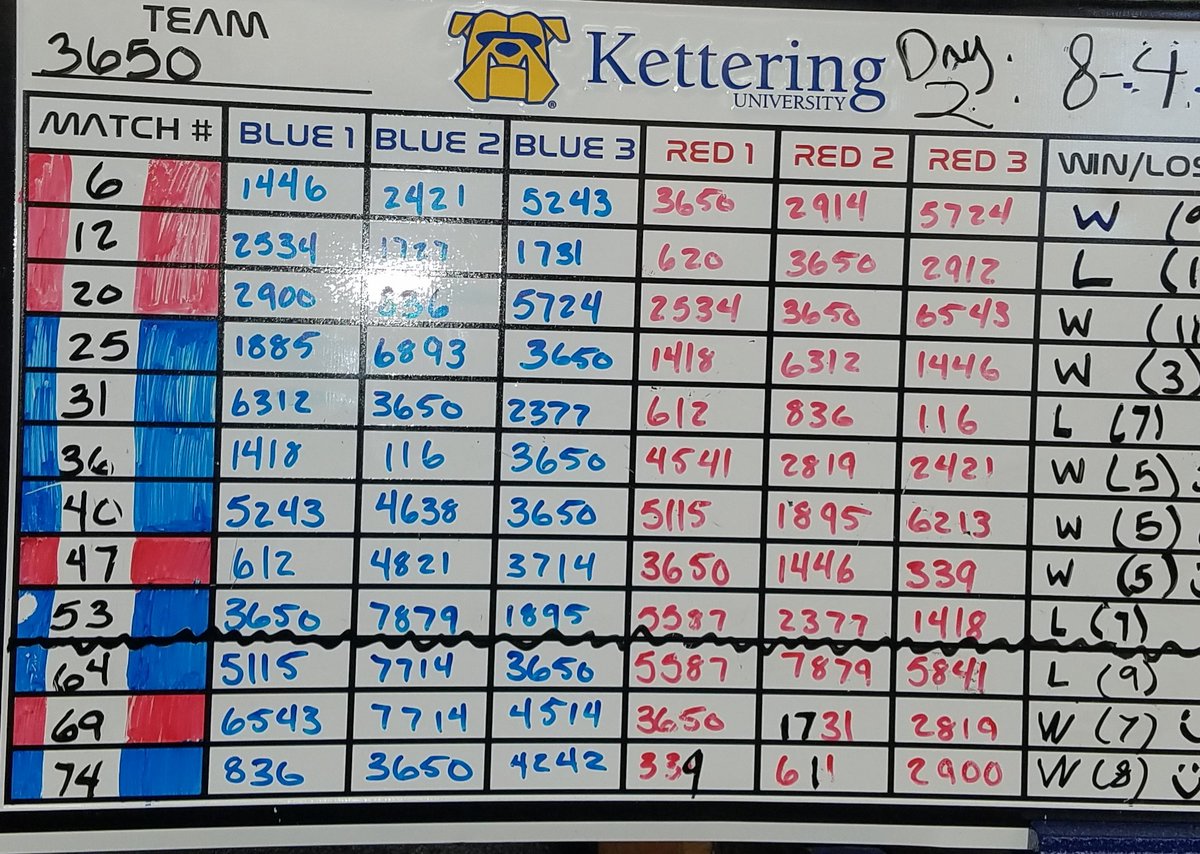 TEAM
3650
Kettering
UNIVERSITY
Day:
2
8-4
MATCH # BLUE 1 BLUE 2 BLUE 3 RED 1 RED 2 RED 3 WIN/LOS
6 1446 2421 5243 3650 2914 5724 W
12 2534 1727 1731 620 3650 2912 L
20 2900 836 5724 2534 3650 6543 W
25 1885 6893 3650 1418 6312 1446 W (3)
31 6312 3650 2377 612 836 116 L (7)
36 1418 116 3650 4541 2819 2421 W (5)
40 5243 4638 3650 5115 1895 6213 W (5)
47 612 4821 3714 3650 1446 339 W (5)
53 3650 7879 1895 5587 2377 1418 L
64 5115 7714 3650 5587 7879 5841 L (9)
69 6543 7714 4514 3650 1731 2819 W (7)
74 836 3650 4242 339 611 2900 W (8)